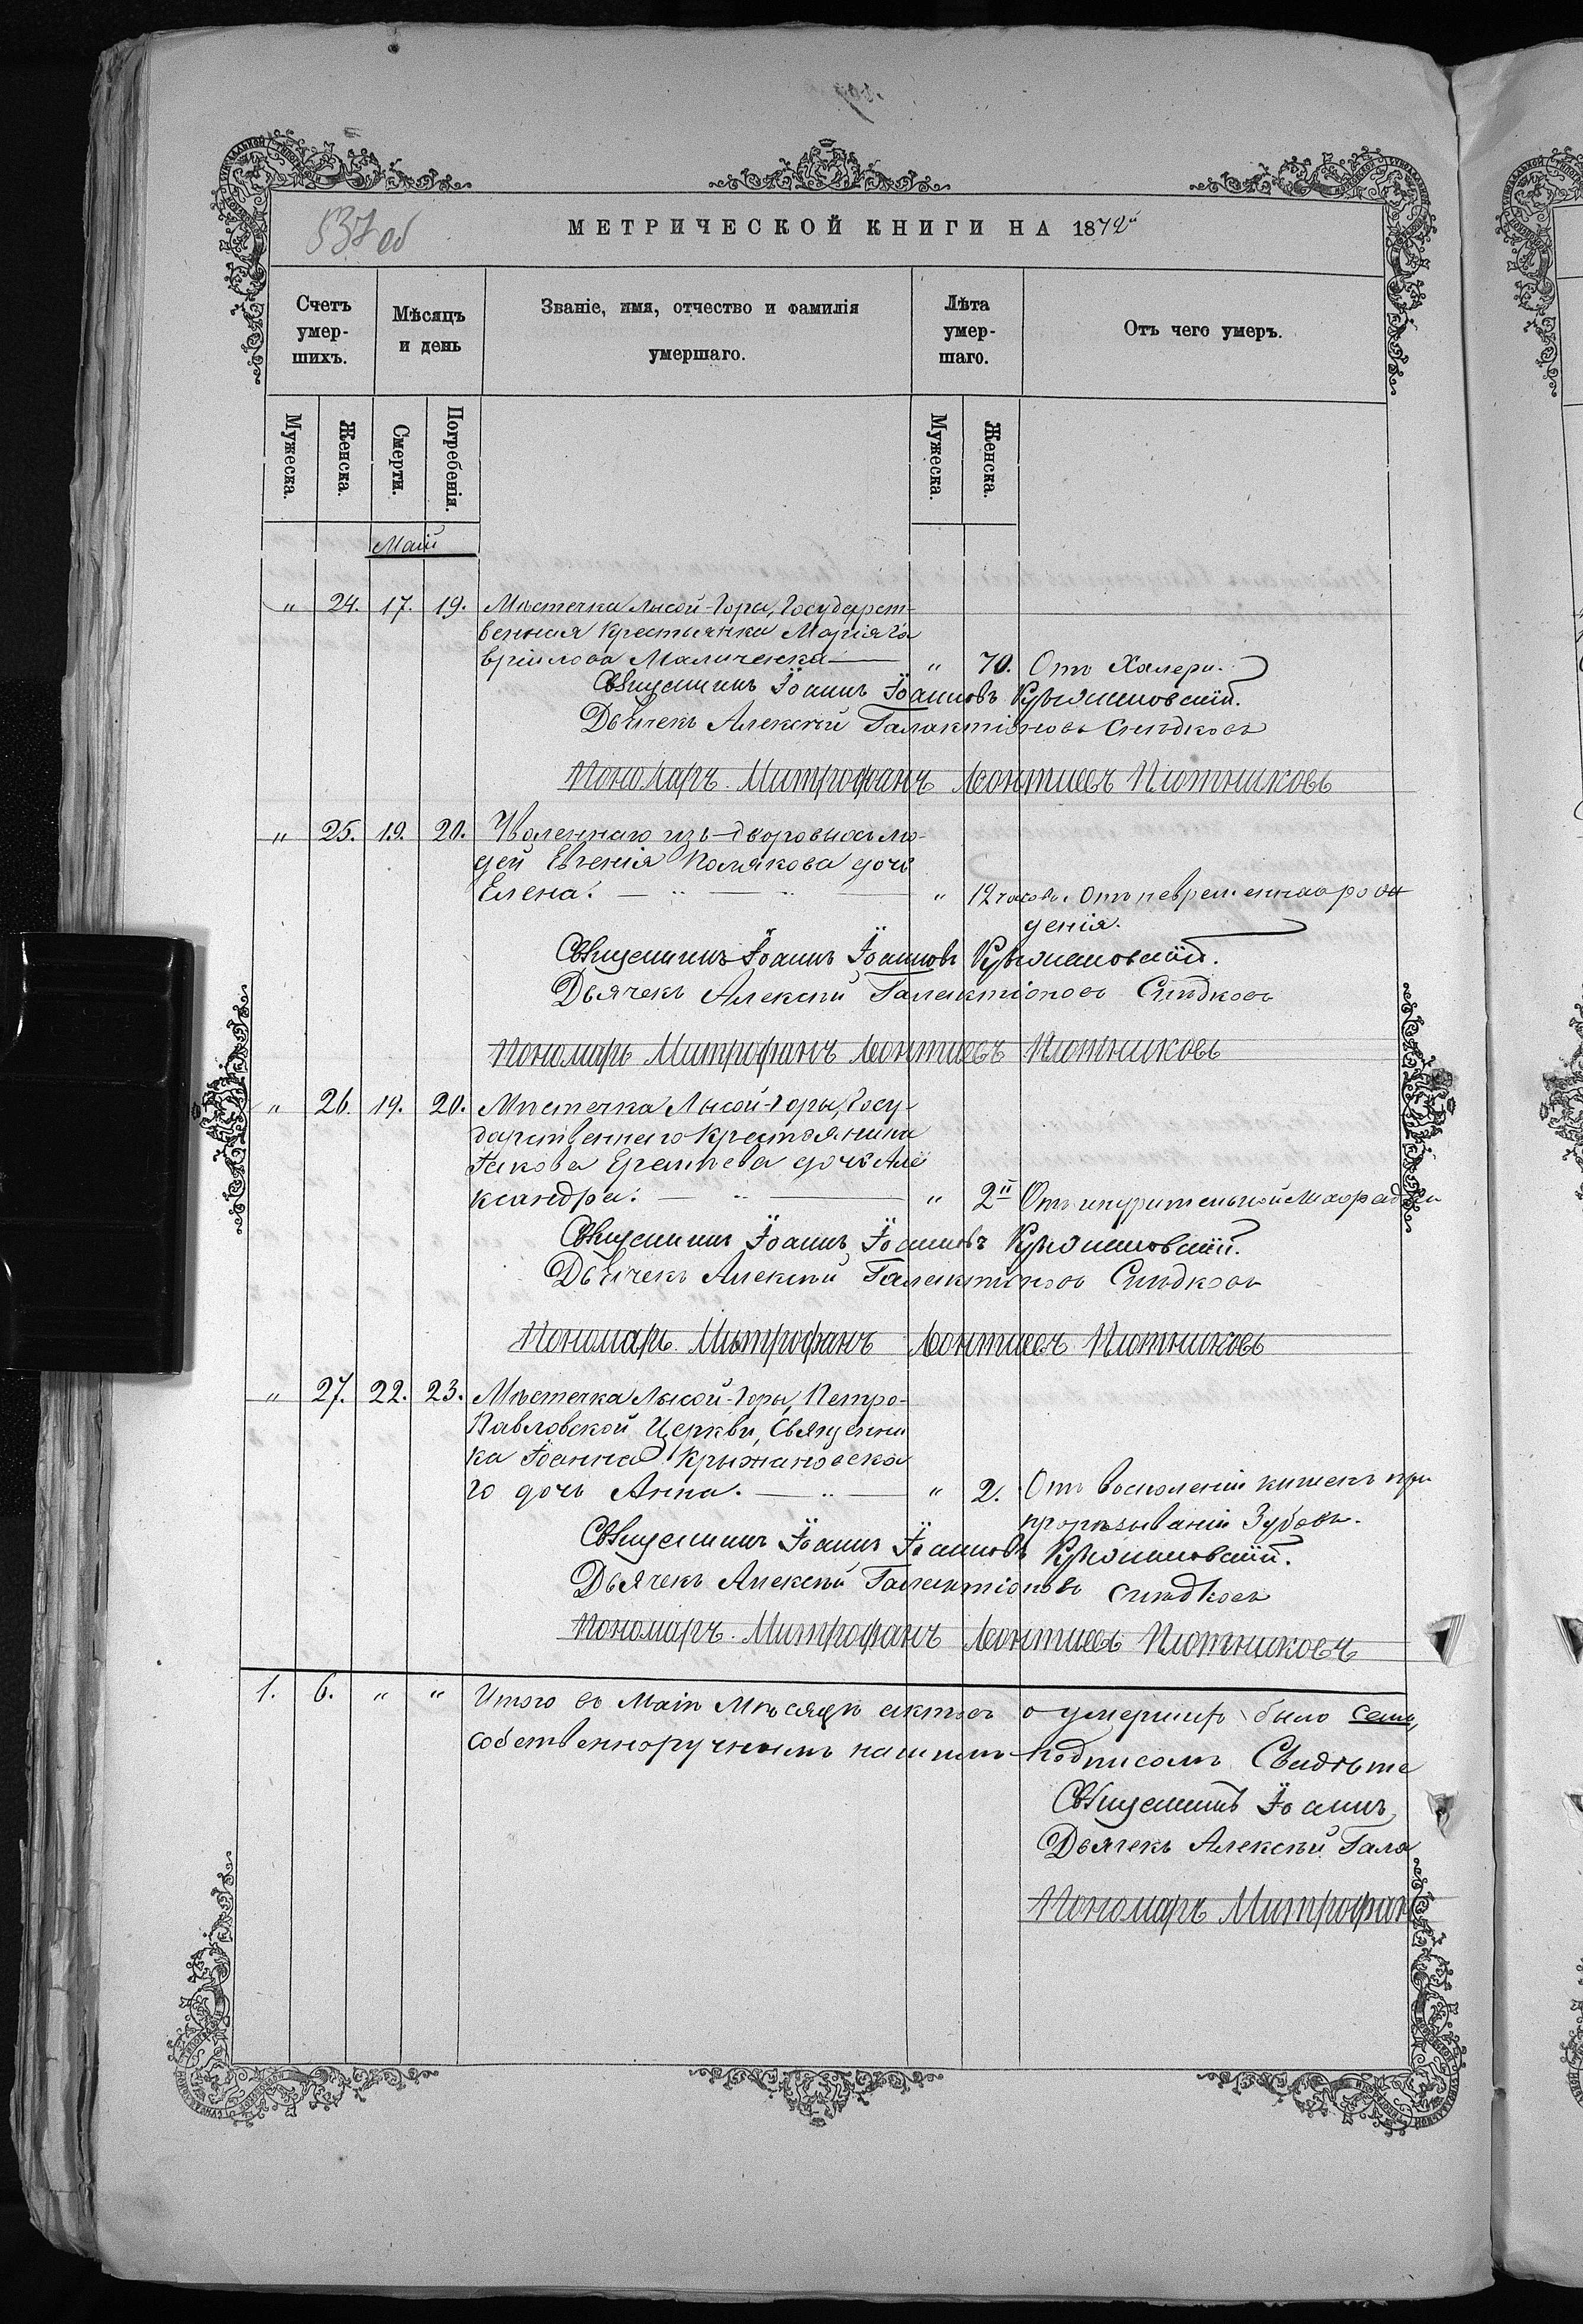 537 об
МЕТРИЧЕСКОЙ КНИГИ НА 1872й
Счетъ умер-шихъ.
Мѣсяцъ и день
Званіе, имя, отчество и фамилія умершаго.
Лѣта умер-шаго.
Отъ чего умеръ.
Мужеска.
Женска.
Смерти.
Погребенія.
Мужеска.
Женска.
Маій
„ 24. 17. 19. Мѣстечка Лысой-Горы, Государст-
венная Крестьянка Марія Га
вріилова Маличенка — „ 70. Отъ Халеры.
Священникъ Іоаннъ Іоанновъ Крыжановскій.
Дьячекъ Алексѣй Галактіоновъ Слѣдковъ
Пономаръ Митрофанъ Леонтиевъ Плотниковъ
„ 25. 19. 20. Уволеннаго изъ-дворовыхъ лю-
дей Евгенія Полякова дочь
Елена. — „ — „ — „ 12 часовъ. Отъ невременнаго рож
денія.
Священникъ Іоаннъ Іоанновъ Крыжановскій.
Дьячекъ Алексѣй Галактіоновъ Слѣдковъ
Пономаръ Митрофанъ Леонтиевъ Плотниковъ
„ 26. 19. 20. Мѣстечка Лысой-Горы, Госу-
дарственнаго Крестьянина
Іакова дочь Але
ксандра. — „ — „ 2 Отъ
Священникъ Іоаннъ Іоанновъ Крыжановскій.
Дьячекъ Алексѣй Галактіоновъ Слѣдковъ
Пономаръ Митрофанъ Леонтиевъ Плотниковъ
„ 27. 22. 23. Мѣстечка Лысой-Горы, Петро-
Павловской Церкви, Священни
ка Іоанна Крыжановска
го дочь Анна. — „ — „ 2. Отъ восполеніи кишекъ при
прорѣзываніи Зубовъ.
Священникъ Іоаннъ Іоанновъ Крыжановскій.
Дьячекъ Алексѣй Галактіоновъ Слѣдковъ
Пономаръ Митрофанъ Леонтиевъ Плотниковъ
1. 6. „ „ Итого въ Маіѣ Мѣсяцѣ актовъ о умершихъ было семь,
собственноручнымъ нашимъ подписомъ Свидѣте
Священникъ Іоаннъ
Дьячекъ Алексѣй Гала
Пономаръ Митрофан